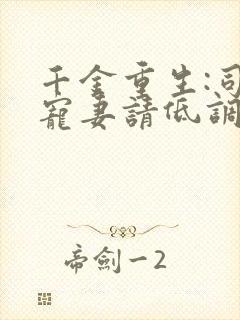 千金重生:司
寵妻請低調
帝劍一2